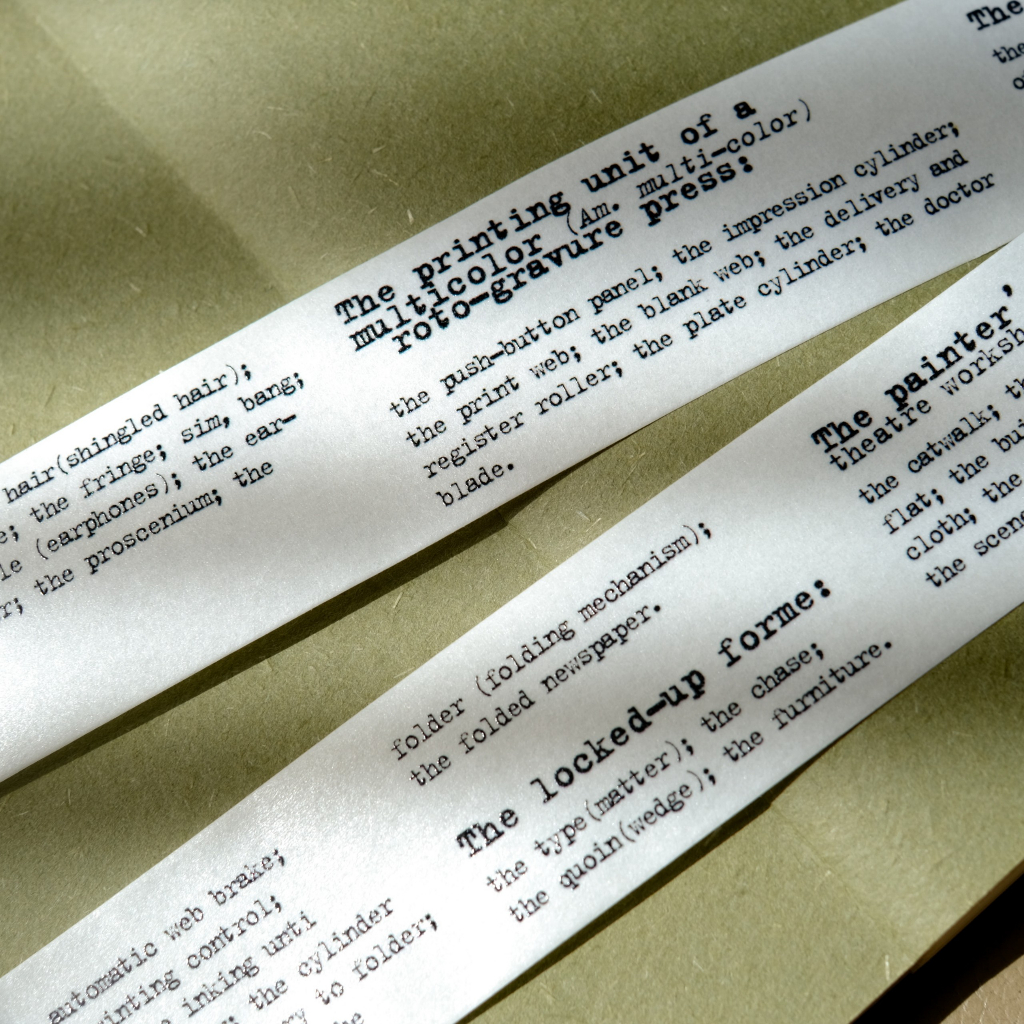 hair(shingled hair);
the fringe; sim, bang;
(earphones); the ear-
the proscenium; the
The printing unit of a
multicolor (Am. multi-color)
roto-gravure press:
the push-button panel; the impression cylinder;
the print web; the blank web; the delivery and
register roller; the plate cylinder; the doctor
blade.
The
the
automatic web brake;
control;
inking unti
the cylinder
to folder;
folder (folding mechanism);
the folded newspaper.
The locked-up forme:
the type(matter); the chase;
the quoin(wedge); the furniture.
The painter,
theatre
the catwalk;
flat; the
cloth; the
the